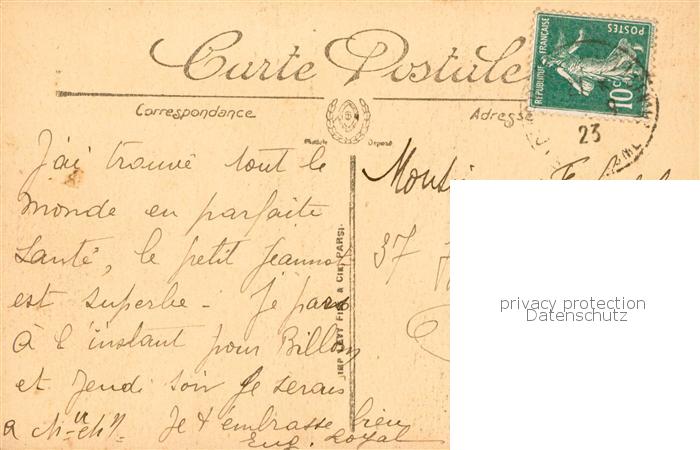 Carte Postale
RÉPUBLIQUE FRANÇAISE
POSTES
10c
23
Correspondance
Adresse
Modèle Déposé
J'ai trouvé tout le
monde en parfaite
santé, le petit Jeannot
est superbe - Je pars
à l'instant pour Billom
et Jeudi soir je serais
a
Je t'embrasse bien
Eug.
IMP LEVY FILS & CIE PARIS.
37
privacy protection
Datenschutz